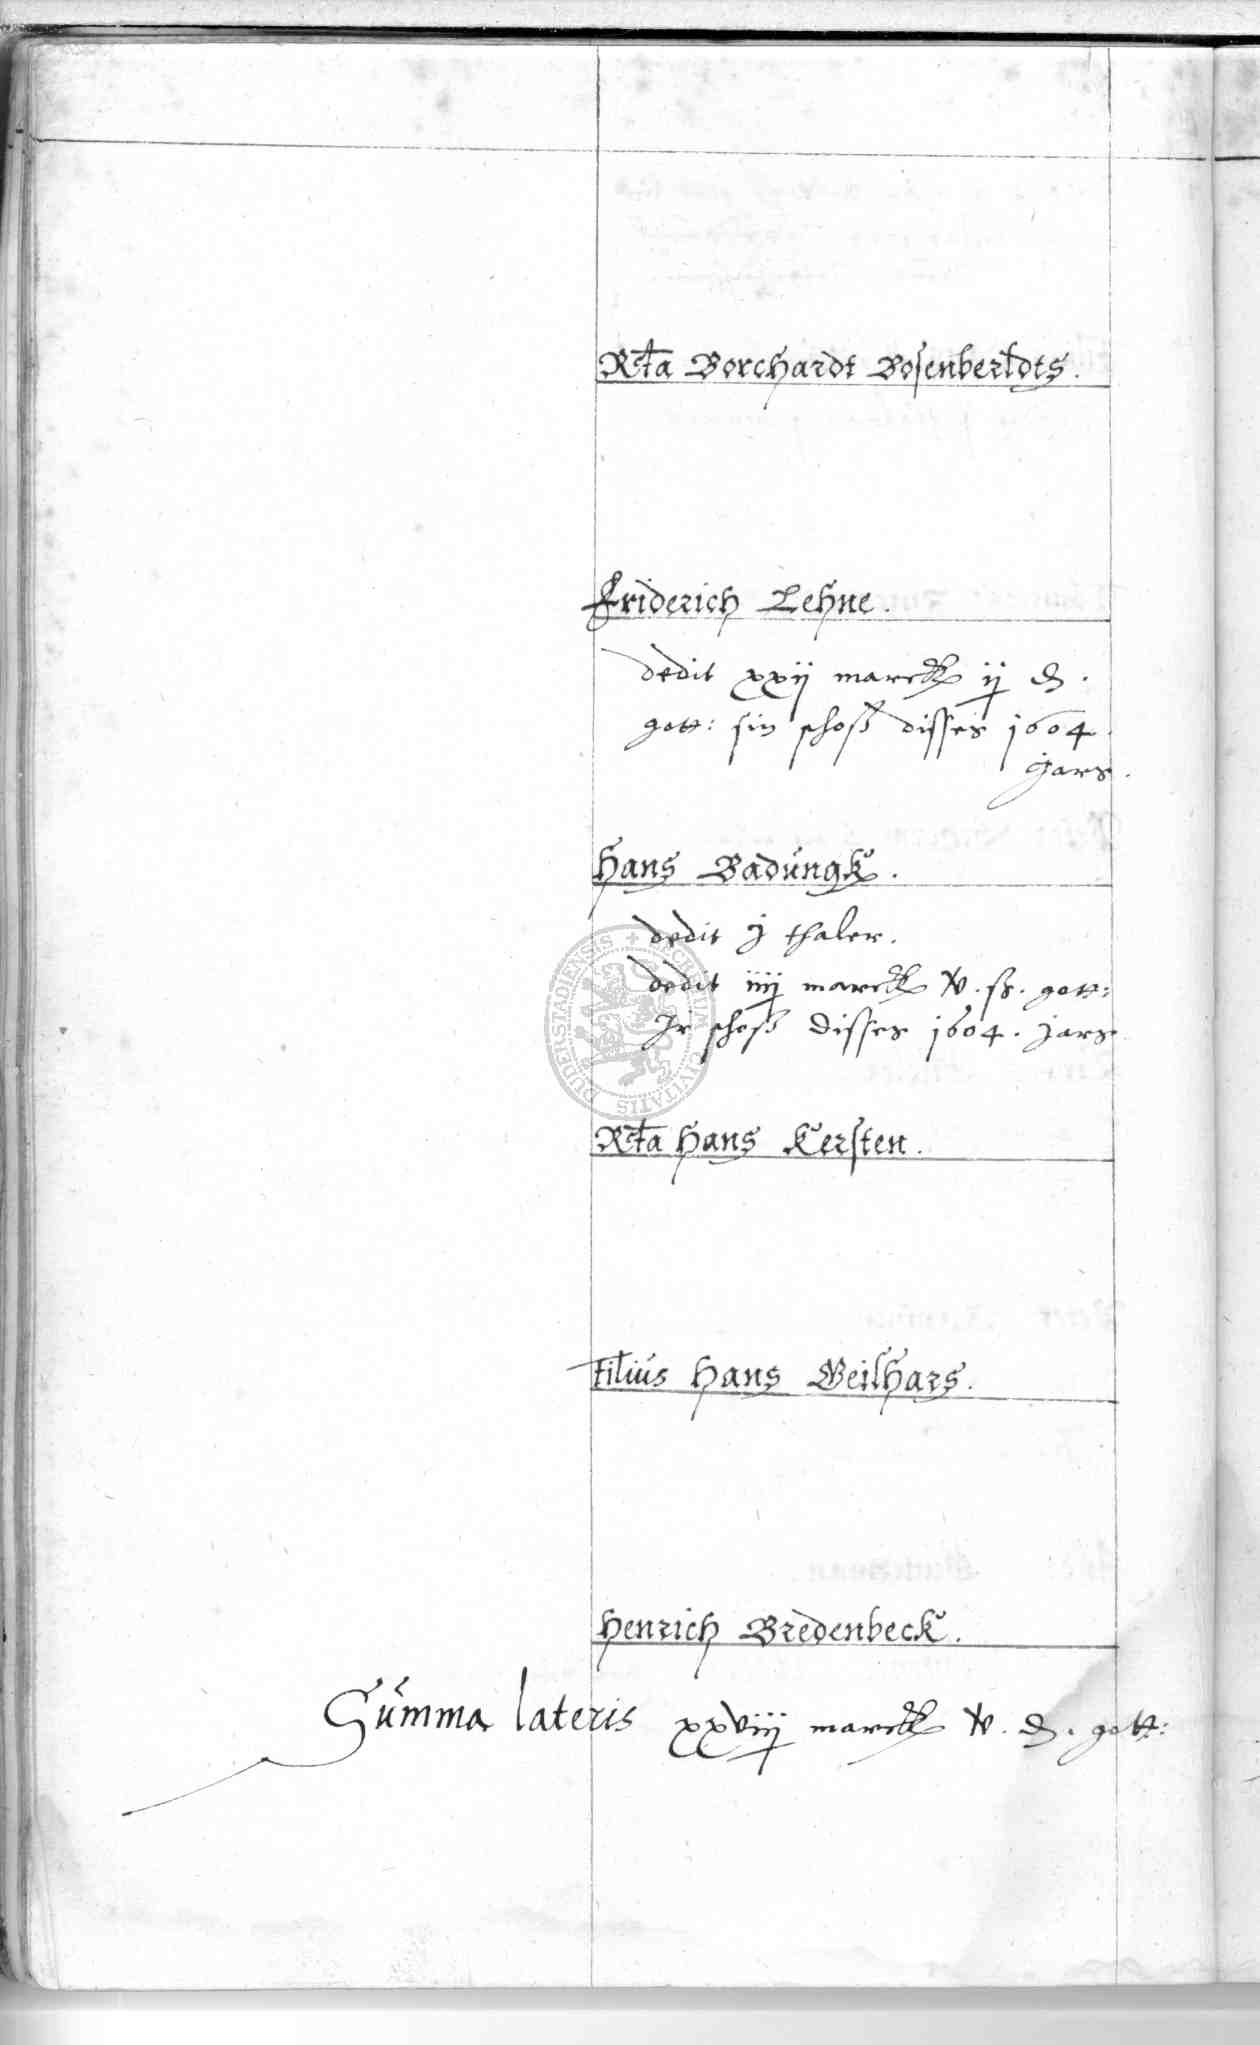 Rcta Borchardt Bosenberdts.
Friderich Lehne.
dedit xxij marck ij d.
gott: sin schoß disses 1604
jars.
Hans Badungk.
dedit j thaler.
dedit iiij marck v. ß. gott:
Ir schoß disses 1604. jars
Rcta Hans Kersten.
Filius Hans Geilhars.
Henrich Bredenbeck.
Summa lateris xxviij marck v. d. gott:
SECRETUM CIVITATIS DUDERSTADIENSIS